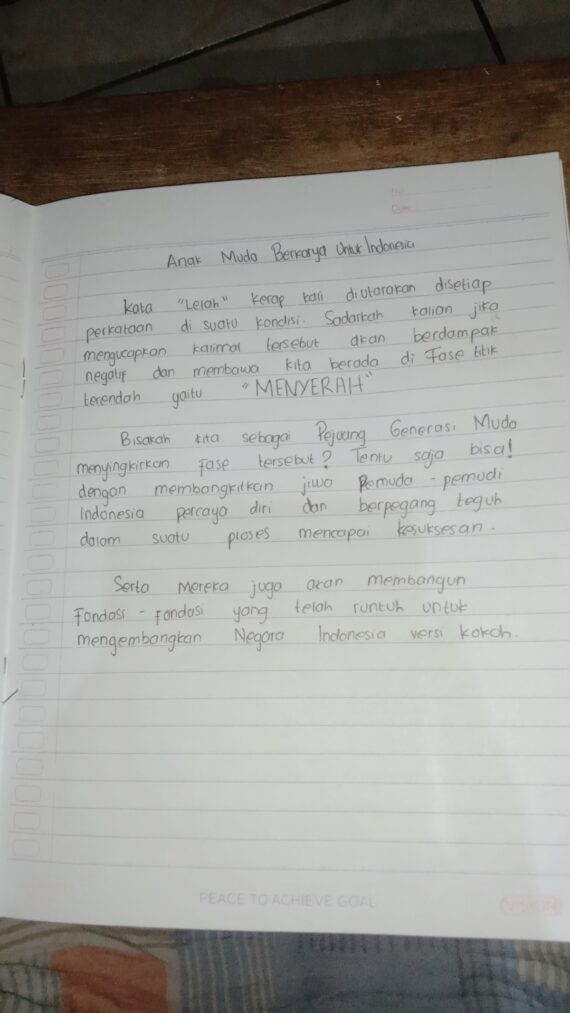 Anak Muda Berkarya Untuk Indonesia
Kata "Lelah" kerap kali diutarakan disetiap
perkataan di suatu kondisi. Sadarkah kalian jika
mengucapkan kalimat tersebut akan berdampak
negatif dan membawa kita berada di Fase titik
terendah yaitu "MENYERAH"
Bisakah kita sebagai Pejuang Generasi Muda
menyingkirkan Fase tersebut? Tentu saja bisa!
dengan membangkitkan jiwa Pemuda - pemudi
Indonesia percaya diri dan berpegang teguh
dalam suatu proses mencapai kesuksesan.
Serta Mereka juga akan membangun
Fondasi - Fondasi yang telah runtuh untuk
mengembangkan Negara Indonesia versi kokoh.
PEACE TO ACHIEVE GOAL